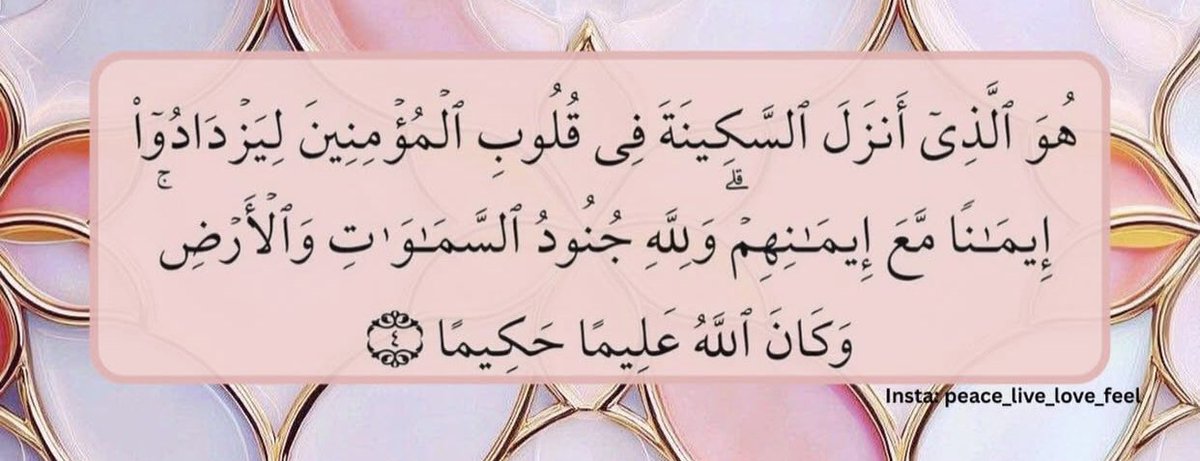 هُوَ ٱلَّذِىٓ أَنزَلَ ٱلسَّكِينَةَ فِى قُلُوبِ ٱلْمُؤْمِنِينَ لِيَزْدَادُوٓا۟
إِيمَـٰنًا مَّعَ إِيمَـٰنِهِمْ ۗ وَلِلَّهِ جُنُودُ ٱلسَّمَـٰوَٰتِ وَٱلْأَرْضِ ۚ
وَكَانَ ٱللَّهُ عَلِيمًا حَكِيمًا ٤
Insta: peace_live_love_feel